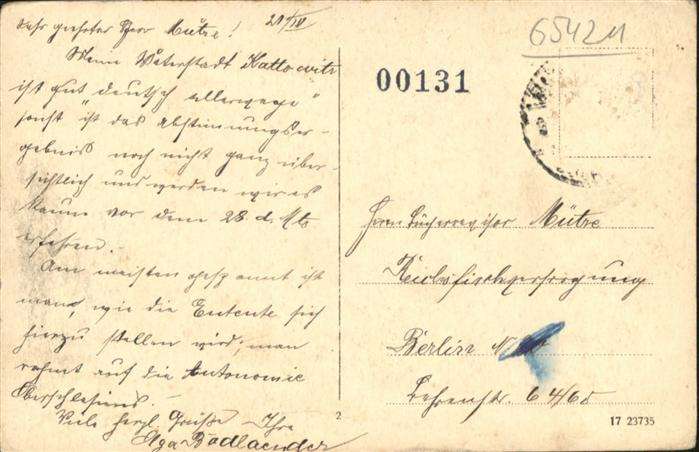 Sehr geehrter Herr Mütze! 21/III
Meine Vaterstadt Kattowitz
ist gut deutsch "allerwege"
sonst ist das Abstimmungser-
gebnis noch nicht ganz über-
sichtlich und werden wir es
kaum vor dem 28. d. Mts
erfahren.-
Am meisten gespannt ist
man, wie die Entente sich
hierzu stellen wird; man
rechnet auf die Autonomie
Oberschlesiens.-
Viele herzl. Grüße Ihre
Bodlaender
65421
00131
Herrn Bücherrevisor Mütze
Reichsfischversorgung
Berlin
Behrenstr. 64/65
2
17 23735